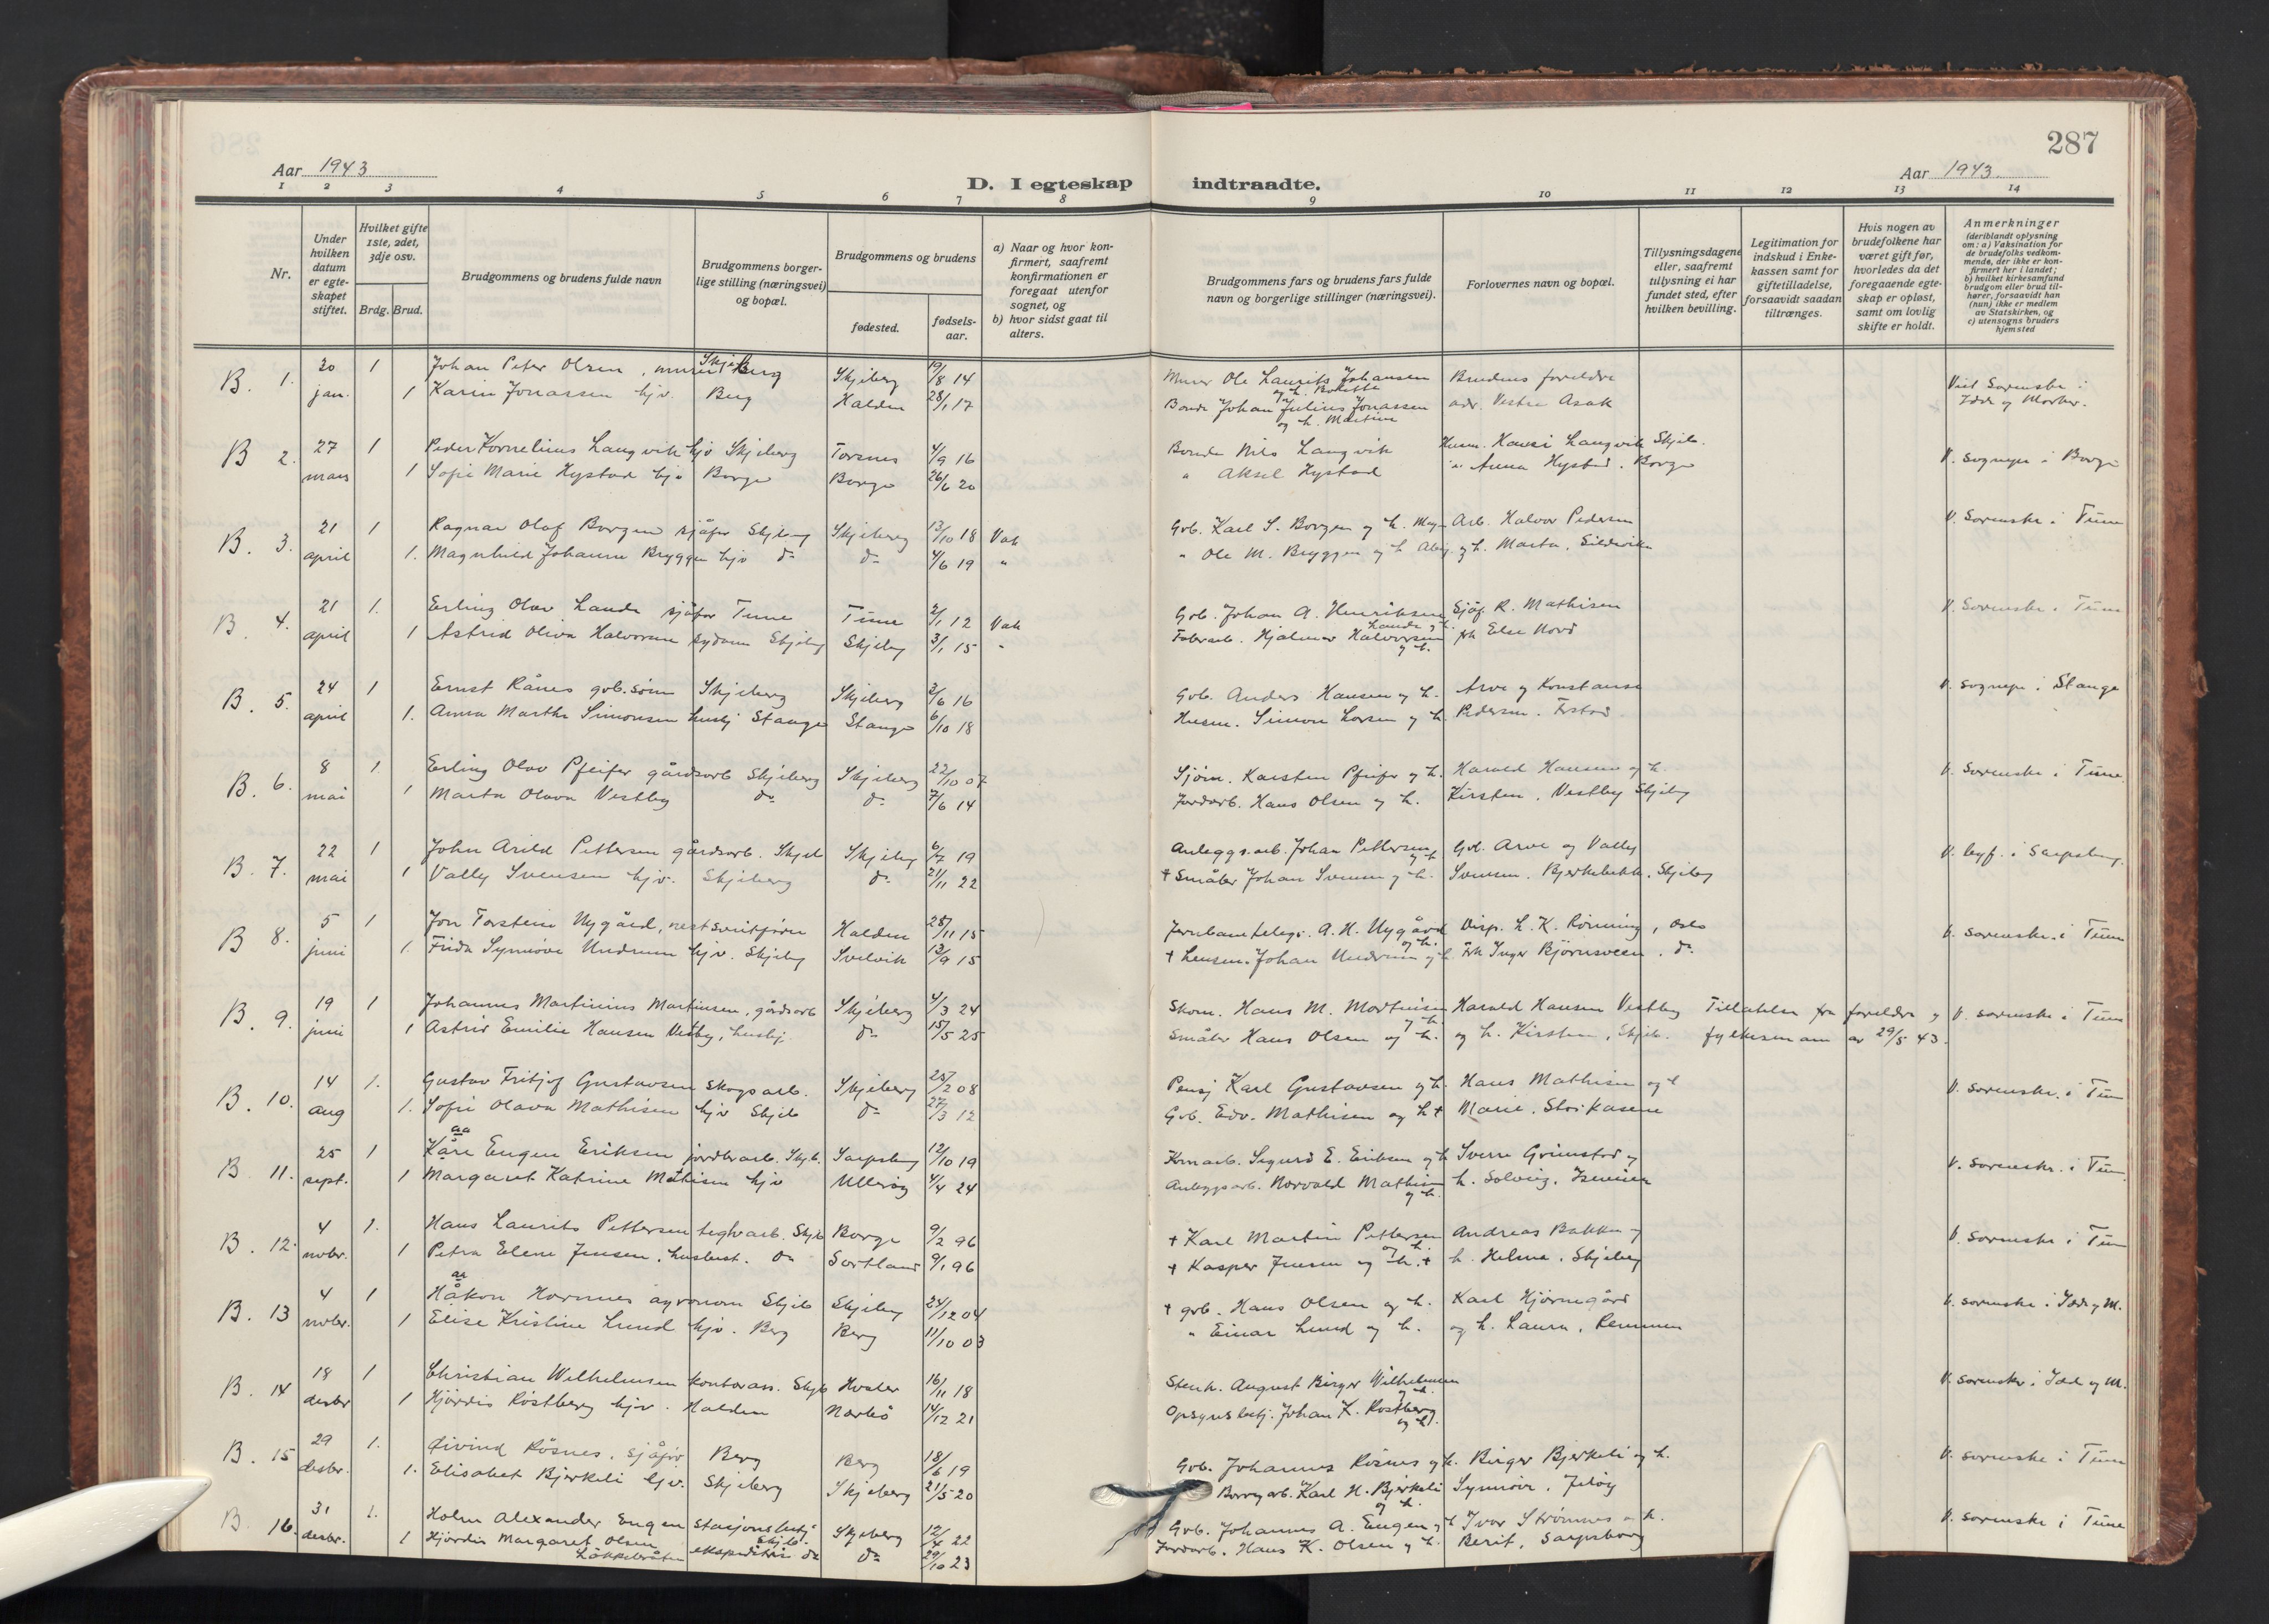 287
Aar 1943
Aar 1943
D. I egteskap indtraadte.
1 2 3 4 5 6 7 8 9 10 11 12 13 14
Nr.
Under hvilken datum er egteskapet stiftet.
Hvilket gifte 1ste, 2det, 3dje osv.
Brdg. Brud.
Brudgommens og brudens fulde navn
Brudgommens borgerlige stilling (næringsvei) og bopæl.
Brudgommens og brudens
fødested.
fødselsaar.
a) Naar og hvor konfirmert, saafremt konfirmationen er foregaat utenfor sognet, og
b) hvor sidst gaat til alters.
Brudgommens fars og brudens fars fulde navn og borgerlige stillinger (næringsvei).
Forlovernes navn og bopæl.
Tillysningsdagene eller, saafremt tillysning ei har fundet sted, efter hvilken bevilling.
Legitimation for indskud i Enkekassen samt for giftetilladelse, forsaavidt saadan tiltrænges.
Hvis nogen av brudefolkene har været gift før, hvorledes da det foregaaende egteskap er opløst, samt om lovlig skifte er holdt.
Anmerkninger
(deriblandt oplysning om: a) Vaksination for de brudefolks vedkommende, der ikke er konfirmert her i landet; b) hvilket kirkesamfund brudgom eller brud tilhører, forsaavidt han (hun) ikke er medlem av Statskirken, og c) utensogns bruders hjemsted
B. 1. 20 1 Johan Peter Olsen, murer Skjeberg Skjeberg 19/8 14 Murer Ole Laurits Johansen og h. Bolette Brudens foreldre Viet Sorenskr. i
jan. 1 Karin Jonassen hjv. Berg Halden 28/1 17 Bonde Johan Julius Jonassen og h. Martine adr. Vestre Asak Idde og Marker.
B 2. 27 1 Peder Kornelius Langvik hjv Skjeberg Torsnes 4/9 16 Bonde Nils Langvik Husm. Langvik Skjeb. V. sognepr i Borge
mars 1 Sofie Marie Hystad hjv Borge Borge 26/6 20 " Aksel Hystad Anna Hystad. Borge
B. 3. 21 1 Ragnar Olaf Borgen sjåfør Skjeberg Skjeberg 13/10 18 Vak Gvb. Karl S. Borgen og h. Arb. Halvor Pedersen V. Sorenskr. i Tune
april 1. Magnhild Johanne Bryggen hjv do do 4/6 19 " " Ole M. Bryggen og h og h. Marta. Sildevika
B. 4. 21 1. Erling Olav Lande sjåfør Tune Tune 2/1 12 Vak Gvb. Johan A. Henriksen Lande og h. Sjåf. R. Mathisen V. Sorenskr. i Tune
april 1 Astrid Oliva Halvorsen sydame Skjeberg Skjeberg 3/1 15 " Fabrarb. Hjalmar Halvorsen og h. frk Else Nord
B. 5. 24 1 Ernst Rånes gvb. sønn Skjeberg Skjeberg 2/6 16 Gvb. Anders Hansen og h. Arve og Konstanse V. sognepr i Stange
april 1. Anna Marthe Simonsen husbj Stange Stange 6/10 18 Husm. Simon Larsen og h. Pedersen.
B. 6. 8 1. Erling Olav Pfeifer gårdsarb Skjeberg Skjeberg 22/10 07 Sjøm. Karsten Pfeifer og h. Harald Hansen og h. V. Sorenskr i Tune
mai 1 Marta Olava Vestby do do 7/6 14 Jordarb. Hans Olsen og h. Kirsten, Vestby Skjeberg
B. 7. 22 1 John Arild Pettersen gårdsarb. Skjeb Skjeberg 6/7 19 Anleggsarb. Johan Pettersen og h Gvb. Arve og Vally V. byf. i Sarpsborg.
mai 1 Vally Svensen hjv. Skjeberg do 21/11 22 † Småbr Johan Svensen og h. Svensen. Bjerkebekk. Skjeberg
B 8. 5 1 Jon Torstein Nygård, Halden 28/11 15 Jernbanetelegr. A. H. Nygård og h. Disp. L. K. Rønning, Oslo V. sorenskr. i Tune
juni 1. Frida Synnøve Undrum hjv. Skjeberg Svelvik 13/9 15 † Lensm. Johan Undrum og h Frk Inger Bjørnsveen. do
B. 9. 19 1 Johannes Martinius Martinsen, gårdsarb Skjeberg 4/3 24 Skom. Hans M. Martinsen og h. Harald Hansen Vestby Tillatelse fra foreldre og V. sorenskr i Tune
juni 1 Astrid Emilie Hansen Vestby, husbj. do 15/5 25 Småbr Hans Olsen og h. og h. Kirsten, Skjeb. fylkesmann av 29/5 43.
B. 10. 14 1. Gustav Fritjof Gustavsen skogsarb. Skjeberg 25/2 08 Pensj Karl Gustavsen og h. Hans Mathisen og h V. sorenskr. i Tune
aug 1. Sofie Olava Mathisen hjv Skjeb do 27/3 12 Gvb. Edv. Mathisen og h † Marie.
B. 11. 25 1 aa Kåre Eugen Eriksen jordbrarb. Skjb. Sarpsborg 12/10 19 Kornarb. Sigurd E. Eriksen og h Sverre Grimstad og V. sorenskr. i Tune
sept. 1 Margaret Katrine Mathisen hjv Ullerøy 4/4 24 Anleggsarb. Norvald Mathisen og h. h. Solveig. Isnesien
B. 12. 4 1. Hans Laurits Pettersen teglvarb. Skjb Borge 9/2 96 † Karl Martin Pettersen og h. Andreas Bakken og V. sorenskr i Tune
novbr. 1 Petra Elene Jensen, husbest. do Sortland 9/1 96 † Kasper Jensen og h. † h. Helene. Skjeberg
B. 13 4 1 aa Håkon Hornnes agronom Skjeb Skjeberg 24/12 04 † gvb. Hans Olsen og h. Karl Hjørnegård V. sorenskr i Idd og M.
novbr. 1 Elise Kristine Lund hjv. Berg Berg 11/10 03 " Einar Lund og h. og h. Laura, Remmen
B. 14 18 1 Christian Wilhelmsen kontorass. Skjb Hvaler 16/11 18 Stenh. August Birger Wilhelmsen og h. V. sorenskr. i Idd og M.
desbr 1 Hjørdis Röstberg hjv. Halden Nærbö 14/12 21 Opsynsbetj. Johan K. Rostberg og h.
B. 15 29 1. Eivind Rösnes, sjåfør Berg Berg 18/6 19 Gvb. Johannes Rösnes og h. Birger Bjerkeli og h. V. sorenskr i Tune
desbr. 1. Elisabet Bjerkeli hjv. Skjeberg Skjeberg 21/5 20 Karl H. Bjerkeli og h. Synnöve, Jelöy
B. 16. 31 1. Holm Alexander Eugen Stasjonsbetj Skjeb. Skjeberg 12/4 22 Gvb. Johannes A. Eugen og h Ivar Strömnes og h. V. sorenskr i Tune
desbr. 1 Hjördis Margaret Olsen Løkkebråten ekspeditrise do do 29/10 23 Jordarb. Hans K. Olsen og h. Berit, Sarpsborg